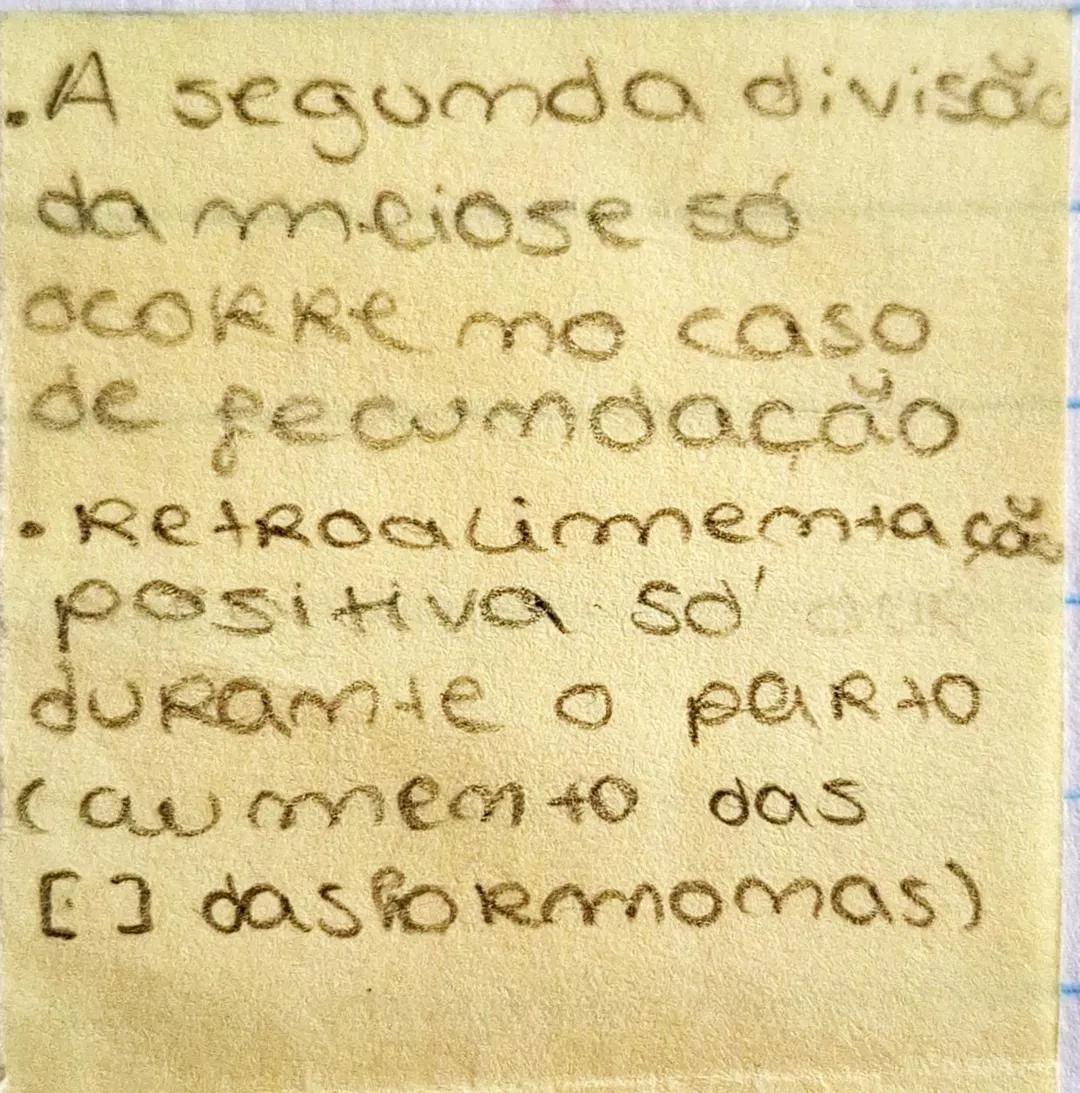 . A segunda divisão
da meiose só
ocorre no caso
de fecundação
• Retroalimentação
positiva só
durante o parto
(aumento das
[ ] das hormonas)